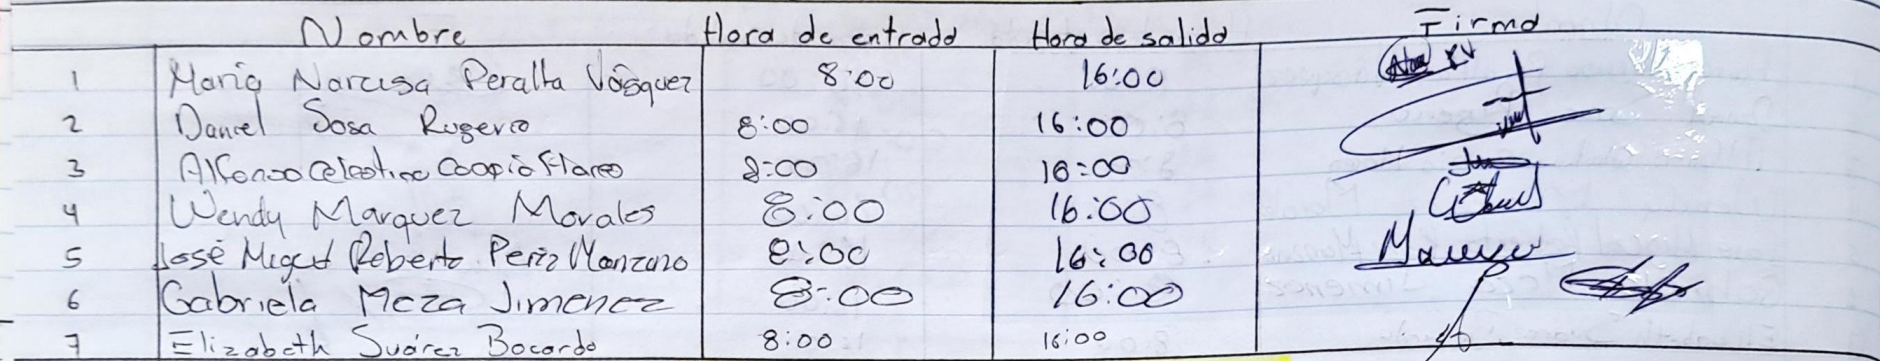 Nombre Hora de entrada Hora de salida Firma
1 Maria Narcisa Peralta Vásquez 8:00 16:00
2 Daniel Sosa Rugerio 8:00 16:00
3 Alfonso Celestino Flores 8:00 16:00
4 Wendy Marquez Morales 8:00 16:00
5 José Miguel Roberto Perez Manzano 8:00 16:00
6 Gabriela Meza Jimenez 8:00 16:00
7 Elizabeth Suárez Bocardo 8:00 16:00